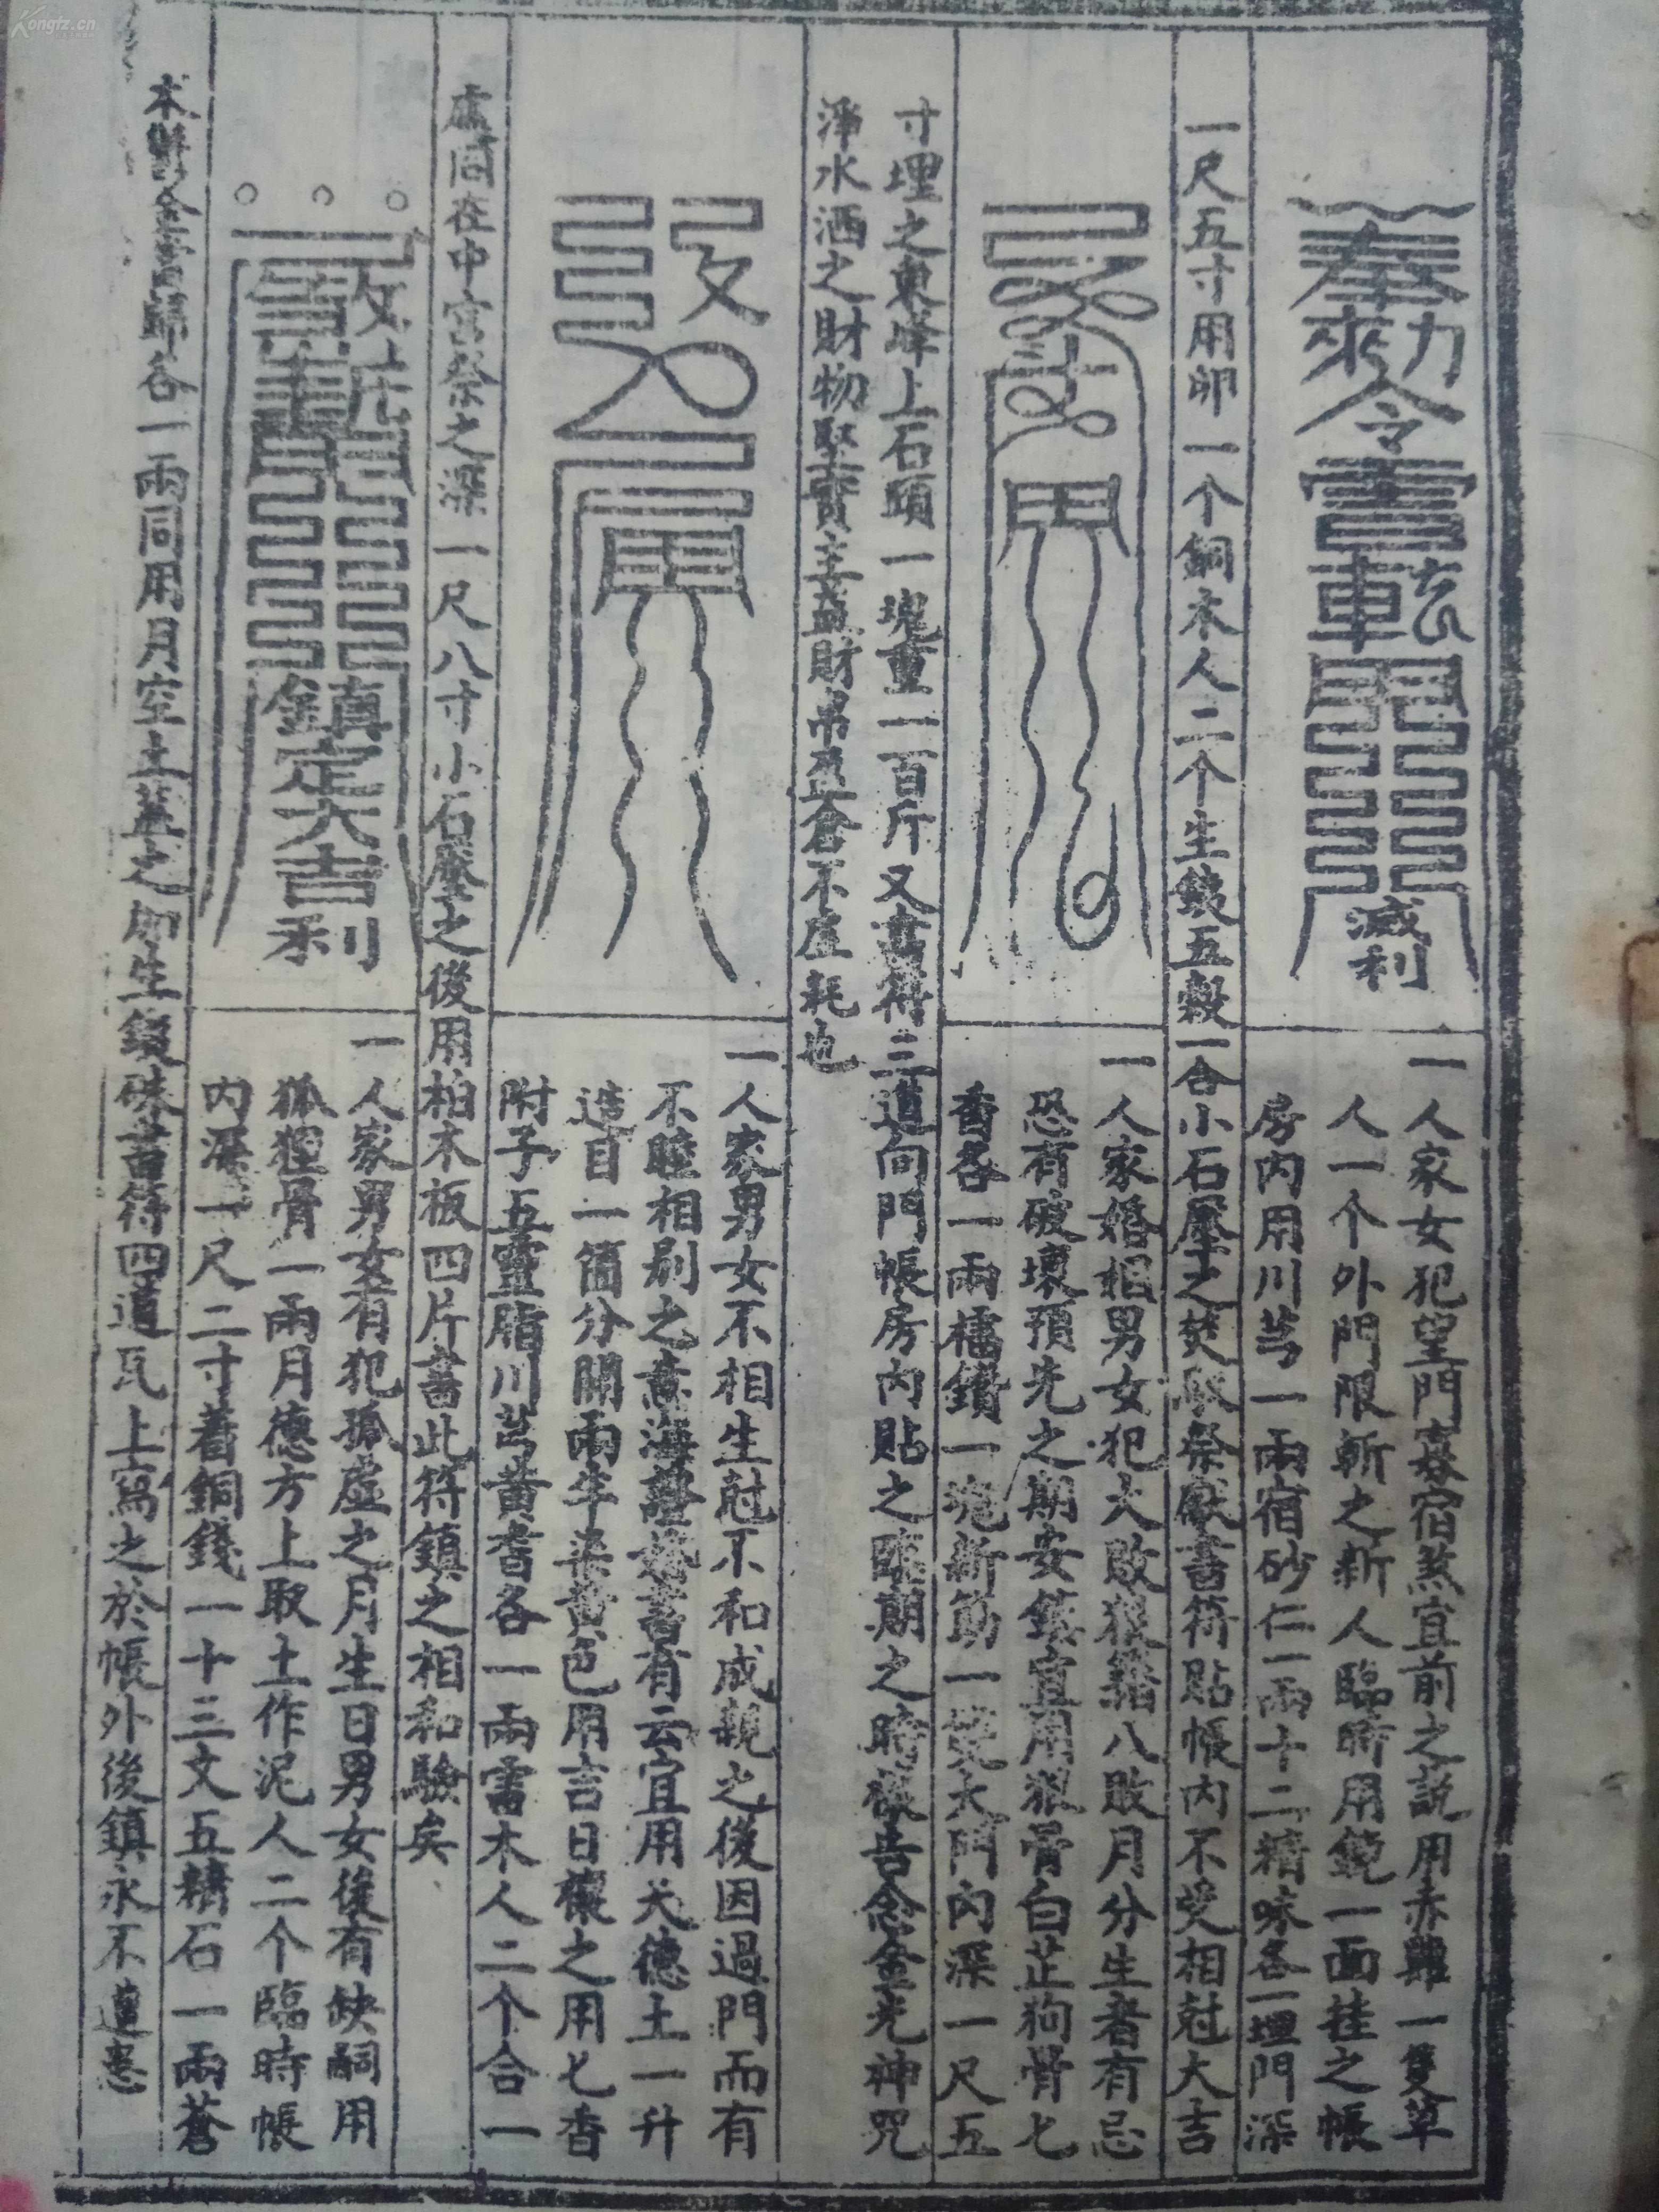 一人家女犯望門寡宿煞宜前之説用赤雞一隻草
人一个外門限斬之新人臨時用鏡一面挂之帳
房内用川芎一兩宿砂仁一兩十二精味各一埋門深
一尺五寸用卵一个銅木人二个生鉄五穀一合小石壓之焚取祭厭書符貼帳内不受相尅大吉
奉勅令
滅利
一人家婚姻男女犯大敗狼籍八敗月分生者有忌
恐有破壞預先之期安鎮宜用狼骨白芷狗骨七
香各一兩檑鑽一塊新筯一雙大門内深一尺五
寸埋之東峰上石頭一塊重一百斤又書符三道向門帳房内貼之臨期之時禳告念金光神咒
淨水洒之財物堅實主益財帛盈倉不虛耗也
一人家男女不相生尅不和成親之後因過門而有
不睦相别之意海證書有云宜用天德土一升
造目一箇分開兩半染黄色用言日禳之用七香
附子五靈脂川芎黄耆各一兩雷木人二个合一
處同在中宫祭之深一尺八寸小石壓之後用柏木板四片書此符鎮之相和驗矣
一人家男女有犯孤虛之月生日男女後有缺嗣用
狐狸骨一兩月德方上取土作泥人二个臨時帳
内深一尺二寸著銅錢一十三文五精石一兩蒼
术鬱金當歸各一兩同用月空土蓋之加生鐵硃書符四道瓦上寫之於帳外後鎮永不遭患
鎮定大吉利
Kongfz.cn